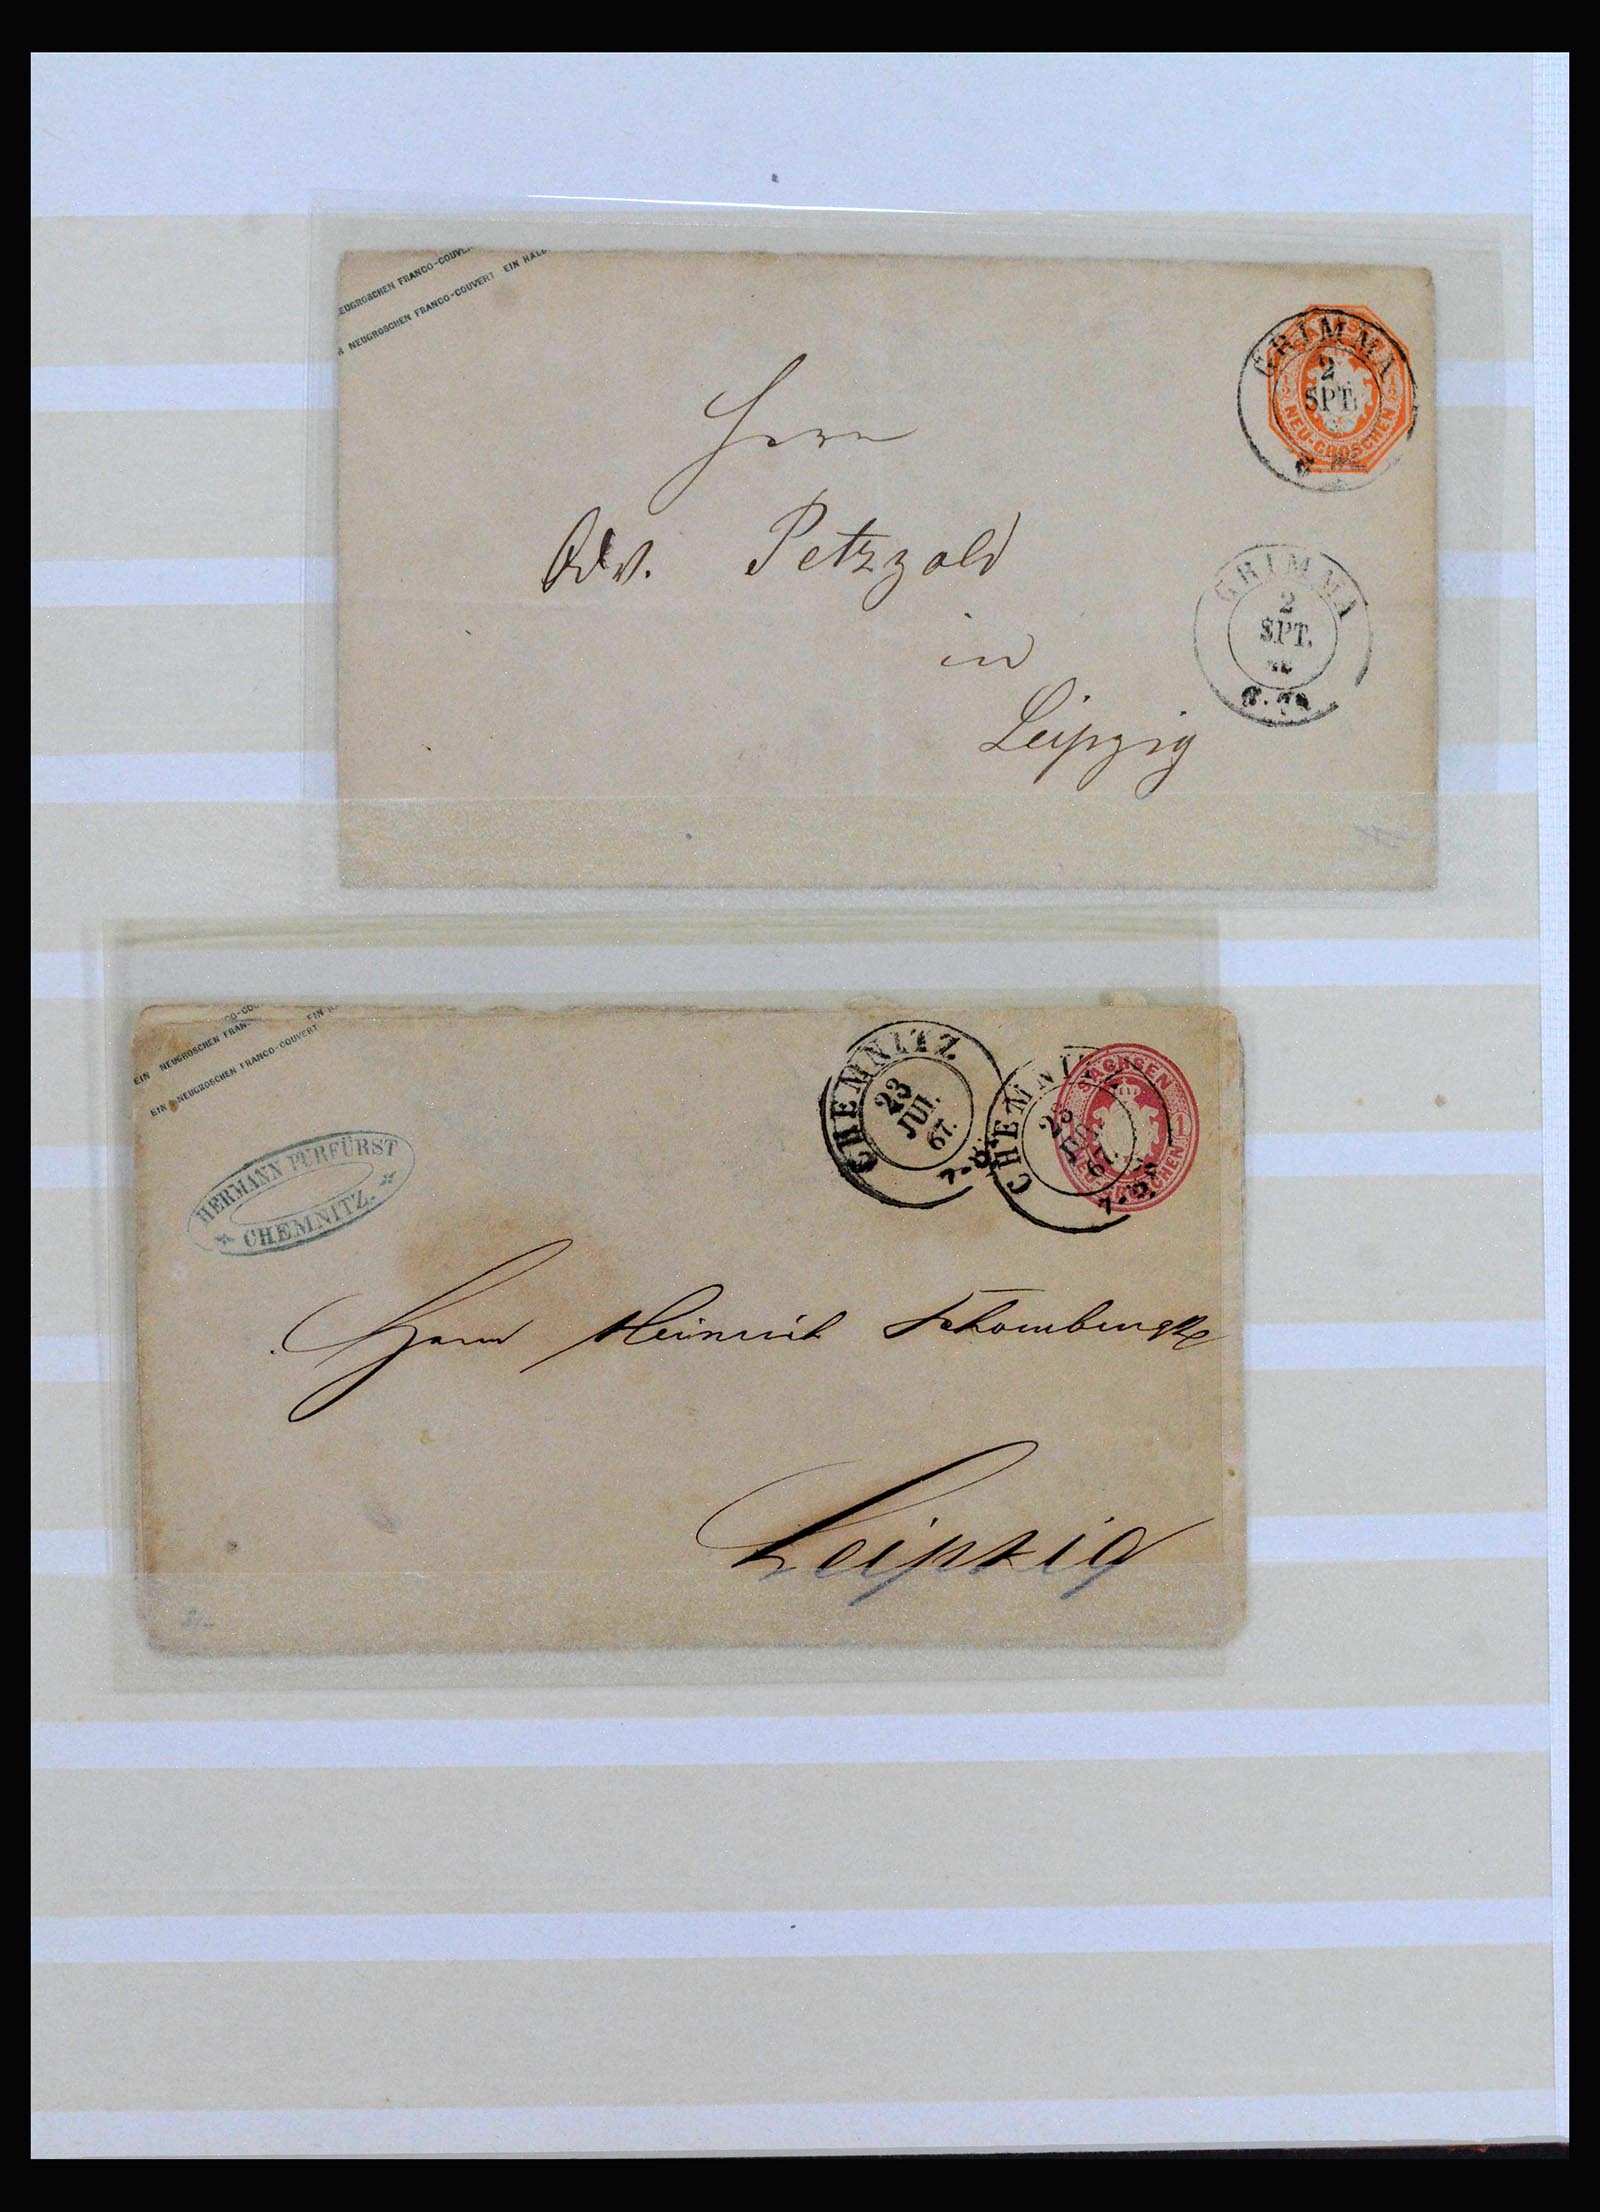 EUGROSCHEN FRANCO-COUVE
NEUGROSCHEN FRANCO-COUVERT EIN HALB
GRIMMA
2
SPT.
NEU-GROSCHEN
Herrn
Adv. Petzzold
in
Leipzig
GRIMMA
2
SPT.
EIN NEUGROSCHEN FRAN CO-CO
EIN NEUGROSCHEN FRANCO-COUVERT EIN N
HERMANN PÜRFÜRST
CHEMNITZ.
CHEMNITZ.
23
JUL
67.
7-8.
CHEMNI
23
67.
7-8.
SACHSEN
1
Herrn Heinrich Schomburgk
Leipzig